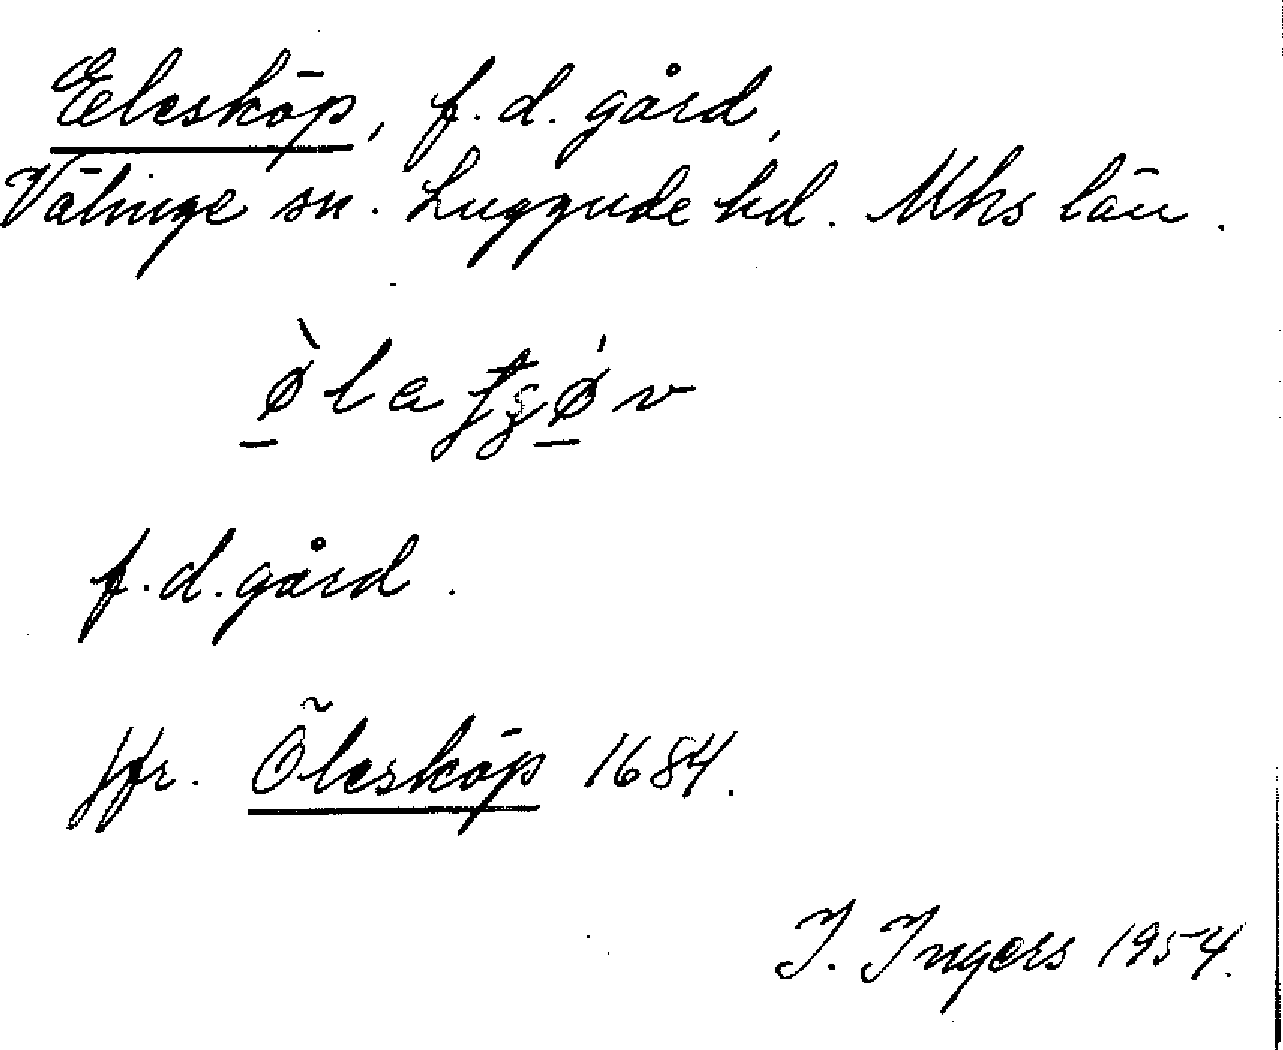 Elesköp, f.d. gård,
Välinge sn. Luggude hd. Mhs län.
f.d. gård.
Jfr. Ölesköp 1684.
I. Ingers 1954.